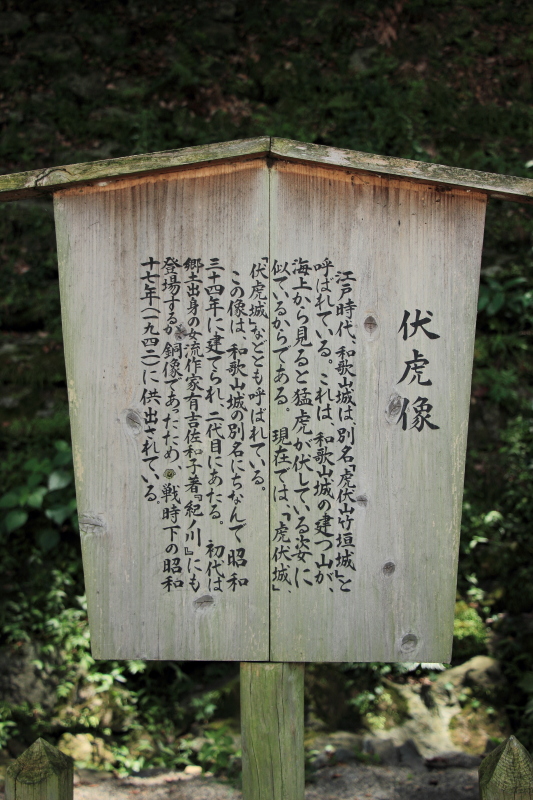 伏虎像
江戸時代、和歌山城は、別名「虎伏山竹垣城」と
呼ばれている。これは、和歌山城の建つ山が、
海上から見ると猛虎が伏している姿に
似ているからである。現在では、「虎伏城」、
「伏虎城」などとも呼ばれている。
この像は、和歌山城の別名にちなんで昭和
三十四年に建てられ、二代目にあたる。初代は
郷土出身の女流作家有吉佐和子著『紀ノ川』にも
登場するが銅像であったため、戦時下の昭和
十七年(一九四二)に供出されている。